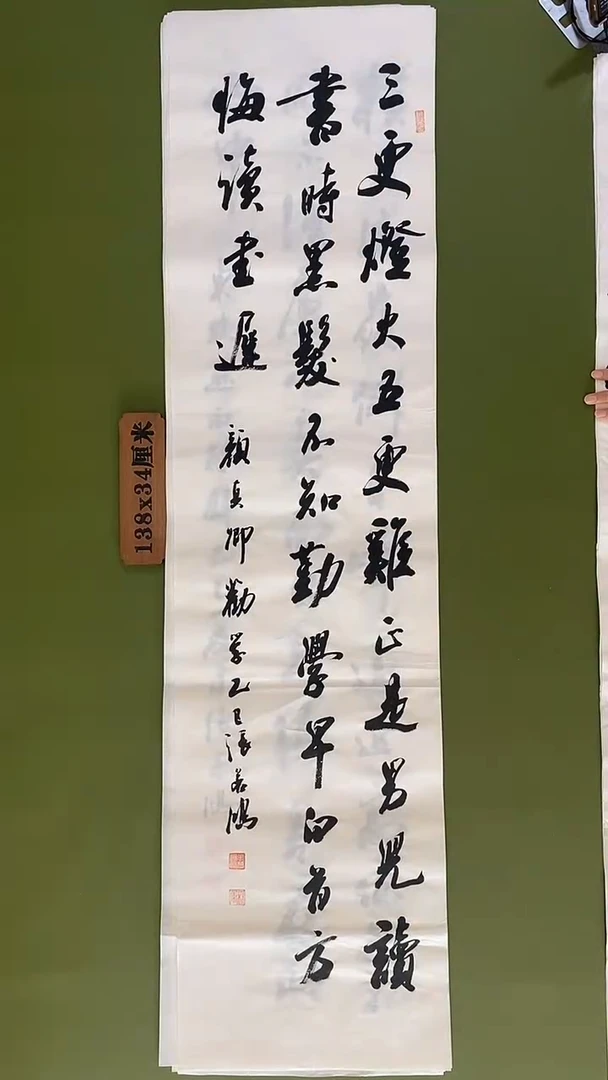 三更燈火五更雞正是男兒讀
書時黑髮不知勤學早白首方
悔读书遲
顏真卿勸学乙巳張若鴻
138x34厘米